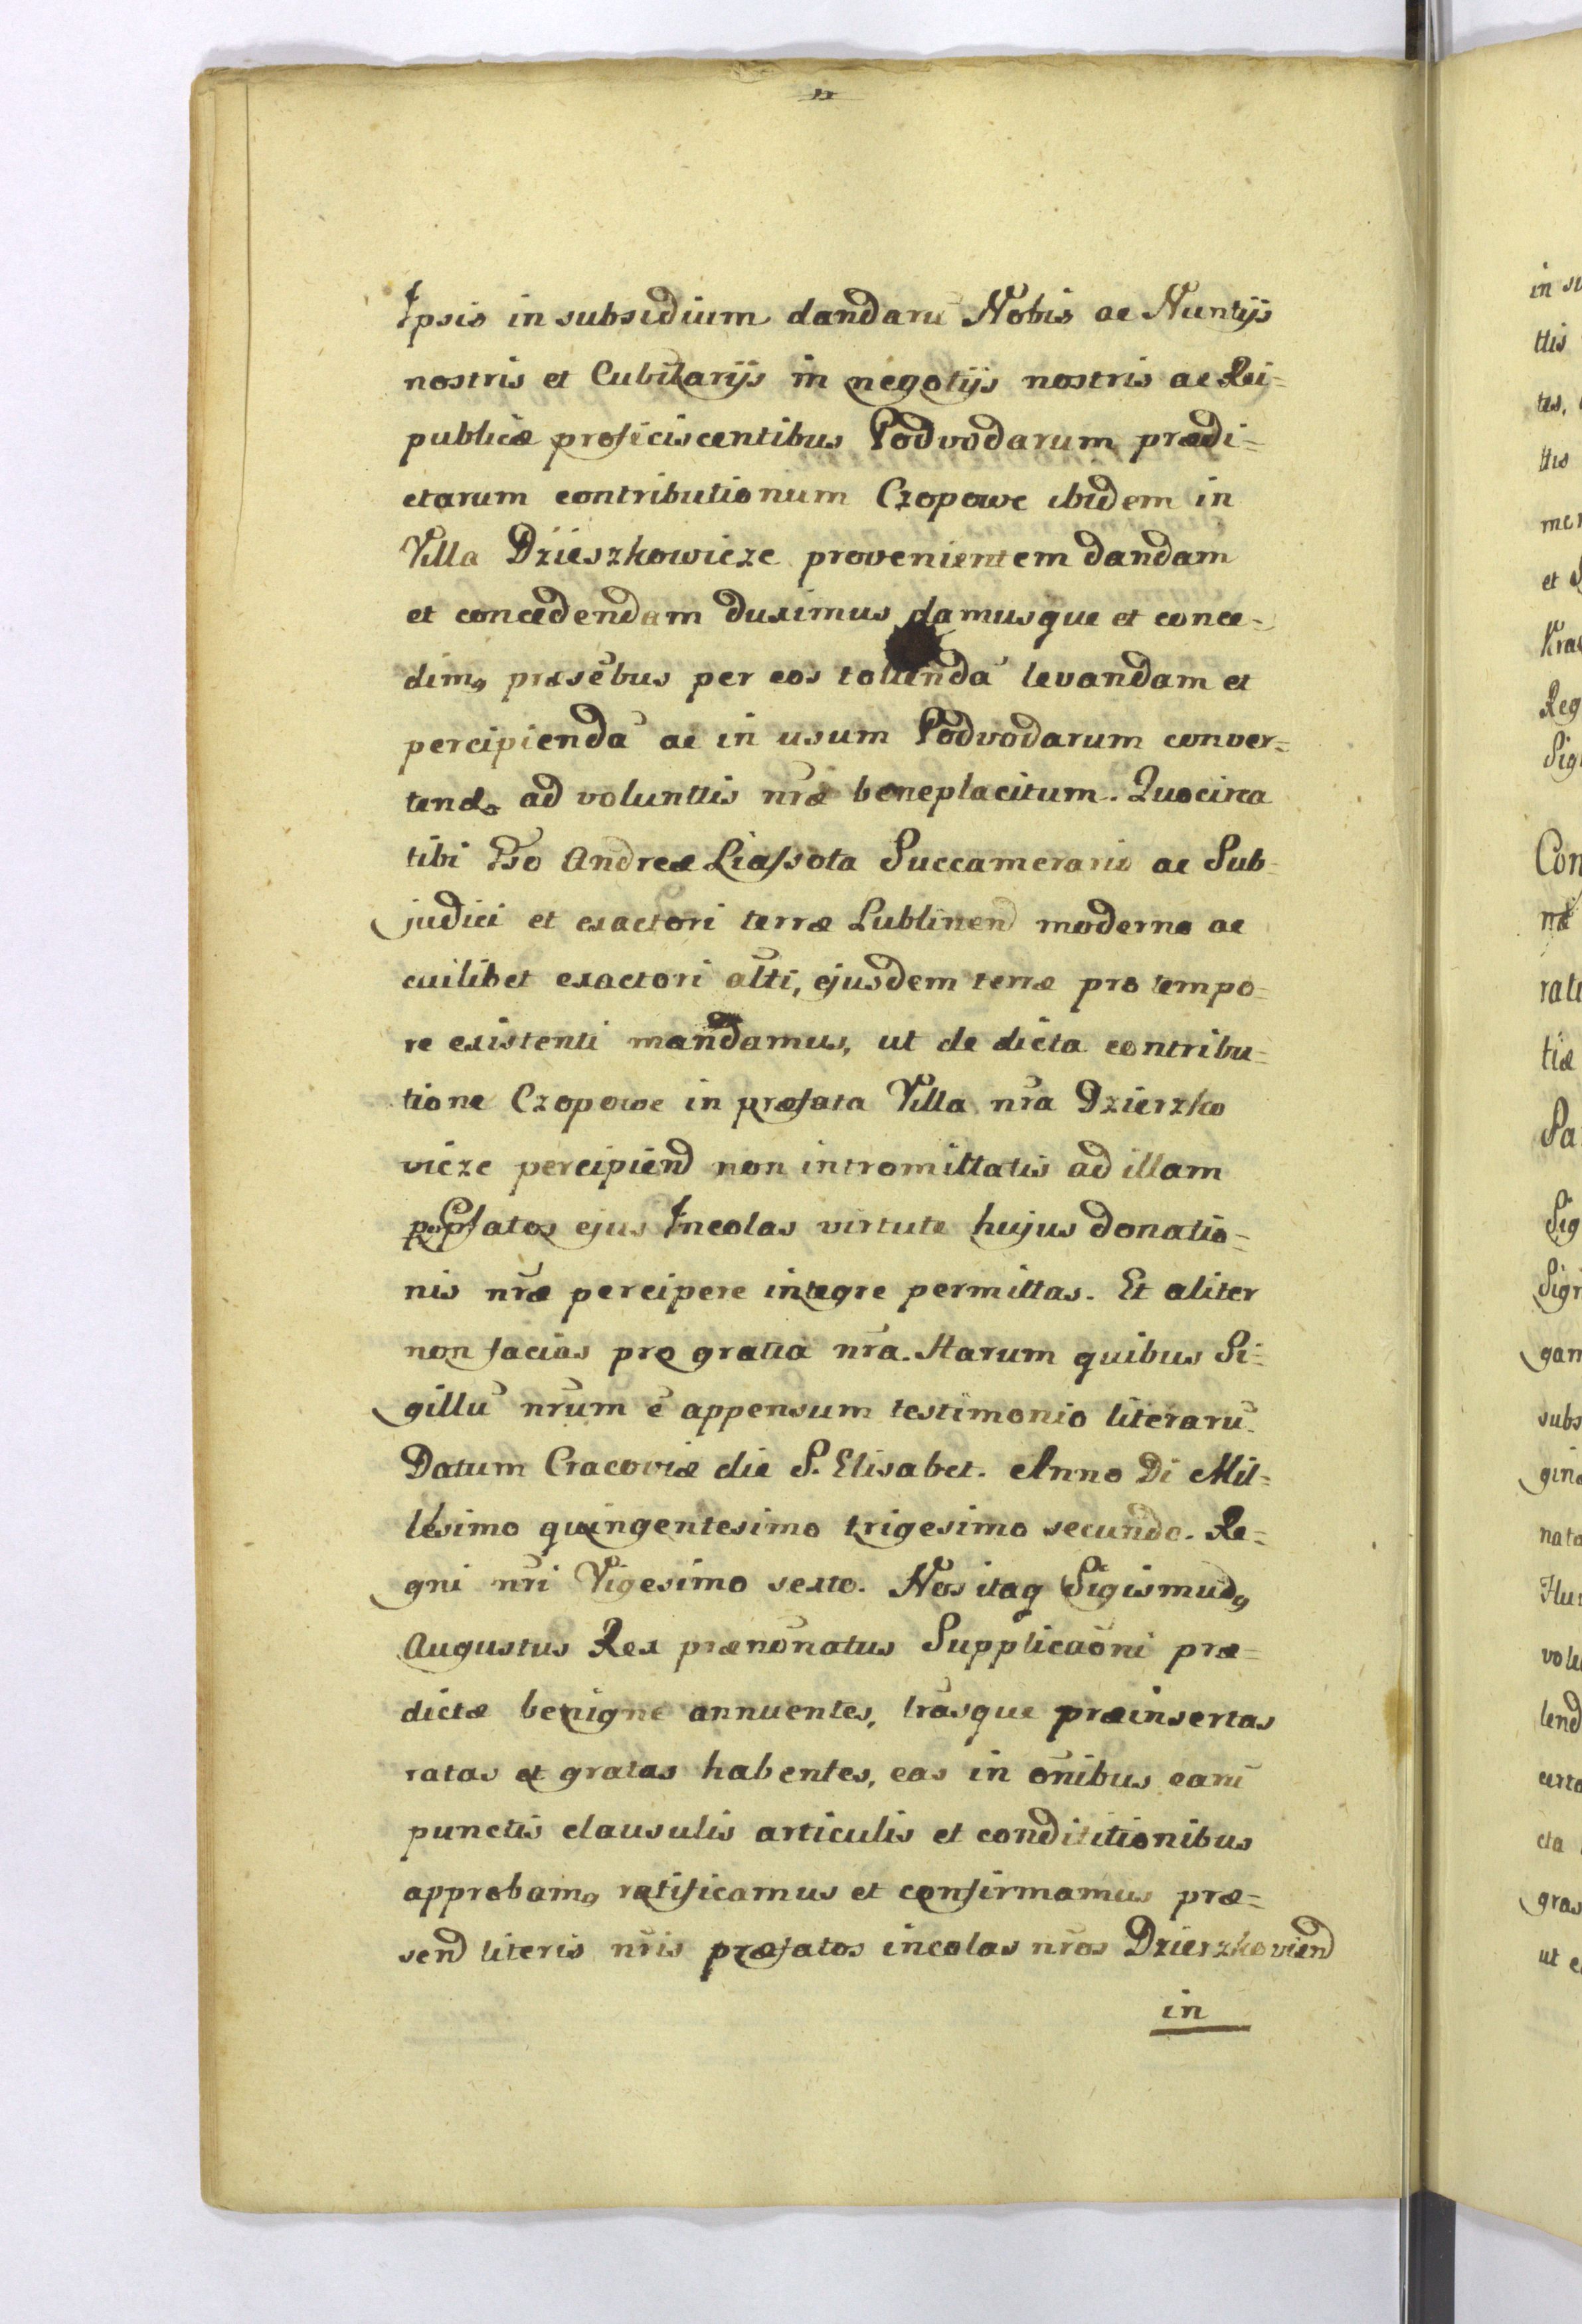 Ipsis in subsidium dandarū Nobis ac Nuntijs
nostris et Cubikarijs in negotijs nostris ac Rei=
publicæ proficiscentibus Podvodarum prædi=
ctarum contributionum Czopowe ibidem in
Villa Dzieszkowicze provenientem dandam
et concedendam duximus damusque et conce-
dim9 præsēbus per eos tollendā levandam et
percipiendā ac in usum Podvodarum conver=
tend. ad volunttis nrǣ beneplacitum. Quocirca
tibi Andreæ Liassota Succamerario ac Sub-
judici et exactori terræ Lublinend moderno ac
cuilibet exactori altī, ejusdem terræ pro tempo=
re existenti mandamus, ut de dicta contribu=
tione Czopowe in præfata Villa nrā Dzierzko
vicze percipiend non intromittatis ad illam
pfatos ejus Incolas virtute hujus donatio=
nis nrǣ percipere integre permittas. Et aliter
non facias pro gratia nrā. Harum quibus Si=
gillū nrūm ē appensum testimonio literarū.
Datum Cracoviæ die S. Elisabet. Anno Di Mil=
lésimo quingentesimo trigesimo secundo. Re=
gni nrī Vigesimo sexto. Nos itaq Sigismud9
Augustus Rex prænōnatus Supplicaōni præ=
dictæ benigne annuentes, lrāsque præinsertas
ratas et gratas habentes, eas in ōnibus earū
punctis clausulis articulis et condititionibus
approbam9 ratificamus et confirmamus præ=
send literis nrīs præfatos incolas nrōs Dzierzkoviend
in
in su
ttis
tes,
ttis
mer
et S
Kra
Reg
Sig
Con
næ
rati
tiæ
Pa
Sig
Sigr
gam
subs
gina
nata
Hu
volu
lend
cta
gras
ut e